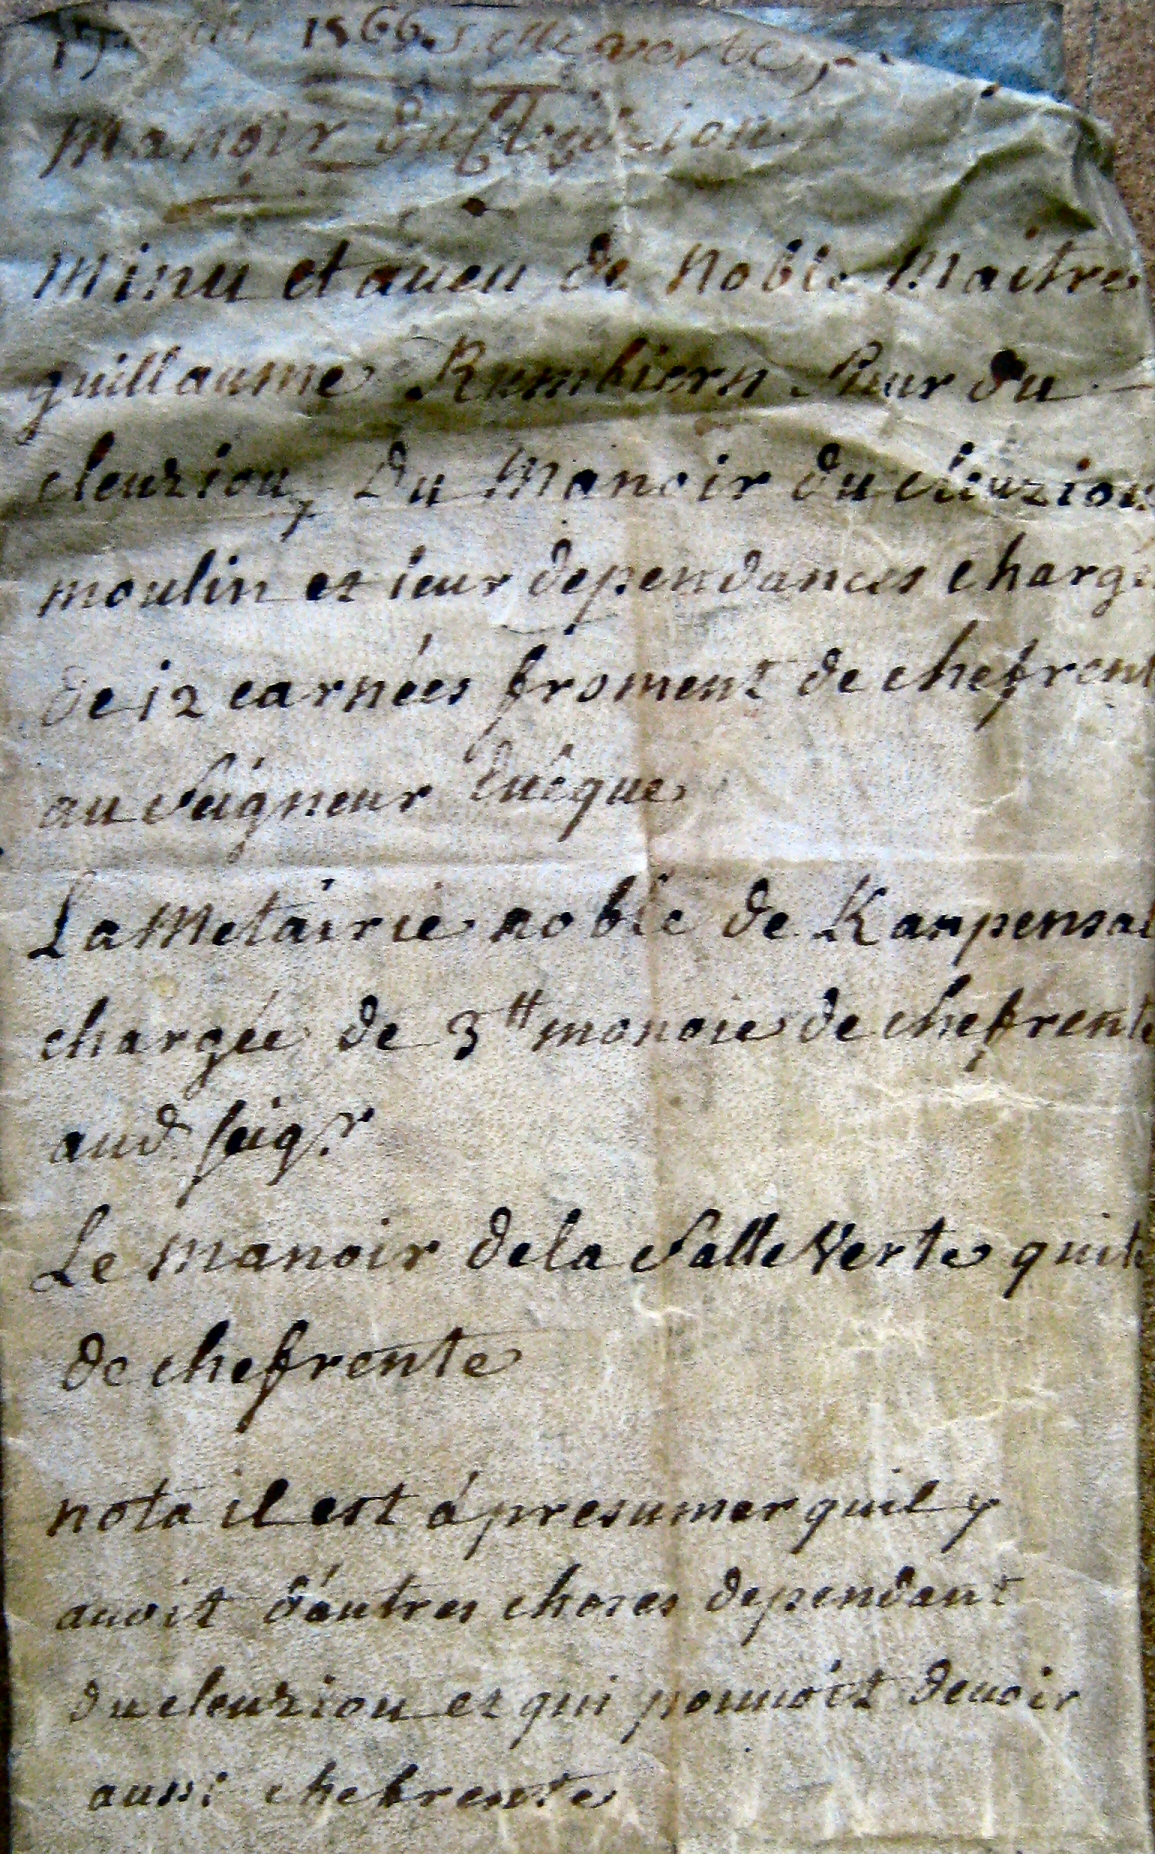 1566. salle verte,
Manoir du Cleuzion
Minu et aueu de Noble Maitre
guillaume Rumbiern Sieur du
cleuziou, Du Manoir du cleuziou
moulin et leur dependances charge
de 12 carnées froment de chefrent
au Seigneur Euêque
La Metairie noble de Kanpensal
chargée de 3tt monoie de chefrente
aud. seigr
Le manoir dela Salle Verte quite
de chefrente
nota il est á presumer quil y
auoit d'autres choses dependant
du cleuziou et qui pouuoit deuoir
aussi chefrente